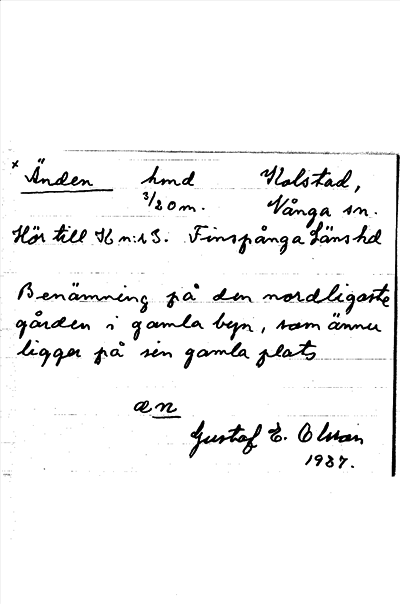 x Änden hmd Kolstad,
3/20 m. Vånga sn.
Hör till K n:r 3. Finspånga Länshd
Benämning på den nordligaste
gården i gamla byn, som ännu
ligger på sin gamla plats
æn
Gustaf E. Olsson
1937.